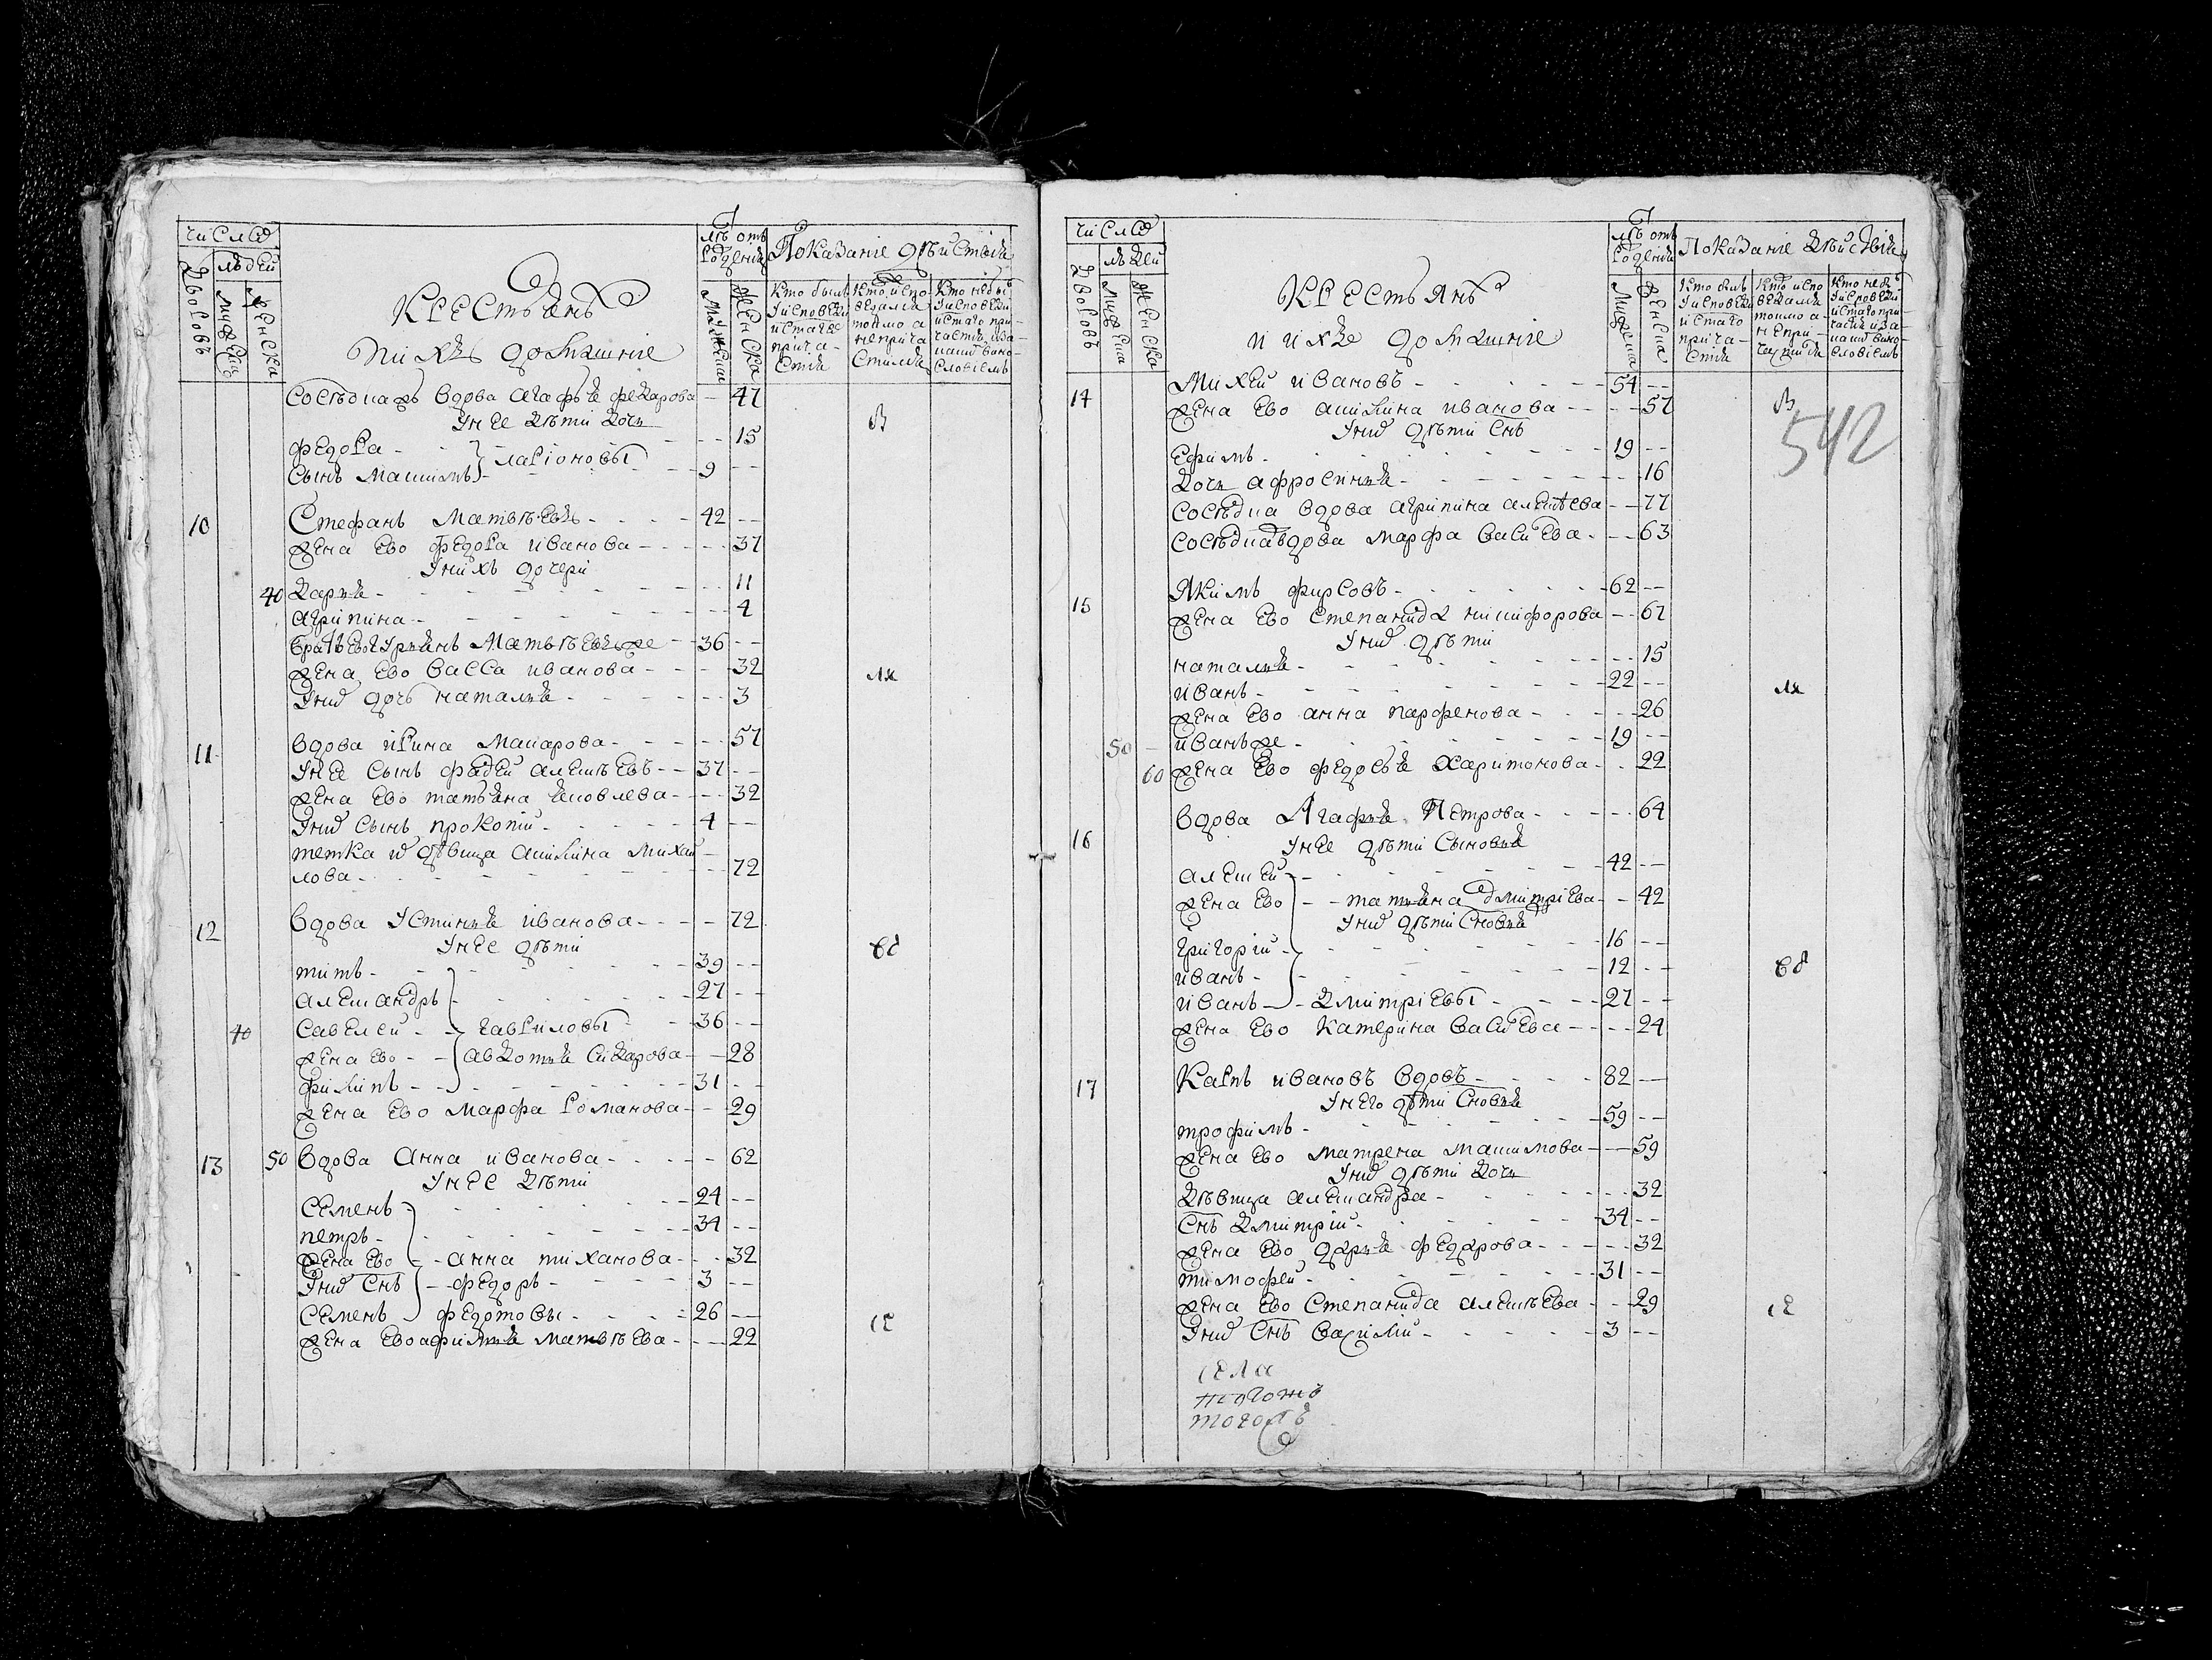 Число
людей
Дворовъ
мужеска
женска
Крестьянъ
и ихъ домашние
летъ отъ рождения
мужеска
женска
Показание действия
Кто былъ у исповеди и стаго прича-стия
Кто испо-ведался токмо а не прича-стился
Кто не былъ у исповеди и стаго при-частия и за какимъ вино-словиемъ
соседка вдова агафья федарова - 47
У нее дети дочь
федора - 15
ларионовы
сынъ максимъ - 9
10 Стефанъ Матвеевъ - 42
жена ево федора иванова - 37
У нихъ дочери
40 дарья - 11
агрипина - 4
братъ ево гурьянъ Матвеевъ же - 36
жена ево васса иванова - 32
У них дочь наталья - 3
11 вдова ирина макарова - 57
У нее сынъ фадей алексеевъ - 37
жена ево татьяна яковлева - 32
У них сынъ прокопий - 4
тетка девица акилина михай
лова - 72
12 вдова устинья иванова - 72
У нее дети
титъ - 39
александръ - 27
40 савелей - гавриловы - 36
жена ево - авдотья сидарова - 28
филипъ - 31
жена ево марфа романова - 29
13 50 вдова анна иванова - 62
У нее дети
семенъ - 24
петръ - 34
жена ево - анна тиханова - 32
У них снъ - федоръ - 3
семенъ федотовы - 26
жена ево афимья матвеева - 22
Число
людей
Дворовъ
мужеска
женска
Крестьянъ
и ихъ домашние
летъ отъ рождения
мужеска
женска
Показание действия
Кто былъ у исповеди и стаго прича-стия
Кто испо-ведался токмо а не при-частился
Кто не былъ у исповеди и стаго при-частия и за какимъ вино-словиемъ
542
14 Михей ивановъ - 54
жена ево акилина иванова - 57
У них дети снъ
ефимъ - 19
дочь афросинья - 16
соседка вдова агрипина алексеева - 77
соседка вдова марфа васильева - 63
15 Якимъ фирсовъ - 62
жена ево степанида никифорова - 67
У них дети
наталья - 15
иванъ - 22
жена ево анна парфенова - 26
50 иванъ же - 19
60 жена ево федосья харитонова - 22
16 вдова Агафья Петрова - 64
У нее дети сыновья
алексей - 42
жена ево - татьяна дмитриева - 42
У них дети сновья
григорий - 16
иванъ - 12
иванъ - дмитриевы - 27
жена ево катерина васильева - 24
17 Карпъ ивановъ вдовъ - 82
У него дети сновья
трофимъ - 59
жена ево матрена максимова - 59
У них дети дочь
девица александра - 32
Снъ дмитрий - 34
жена ево дарья федарова - 32
тимофей - 31
жена ево степанида алексеева - 29
У них снъ василий - 3
села